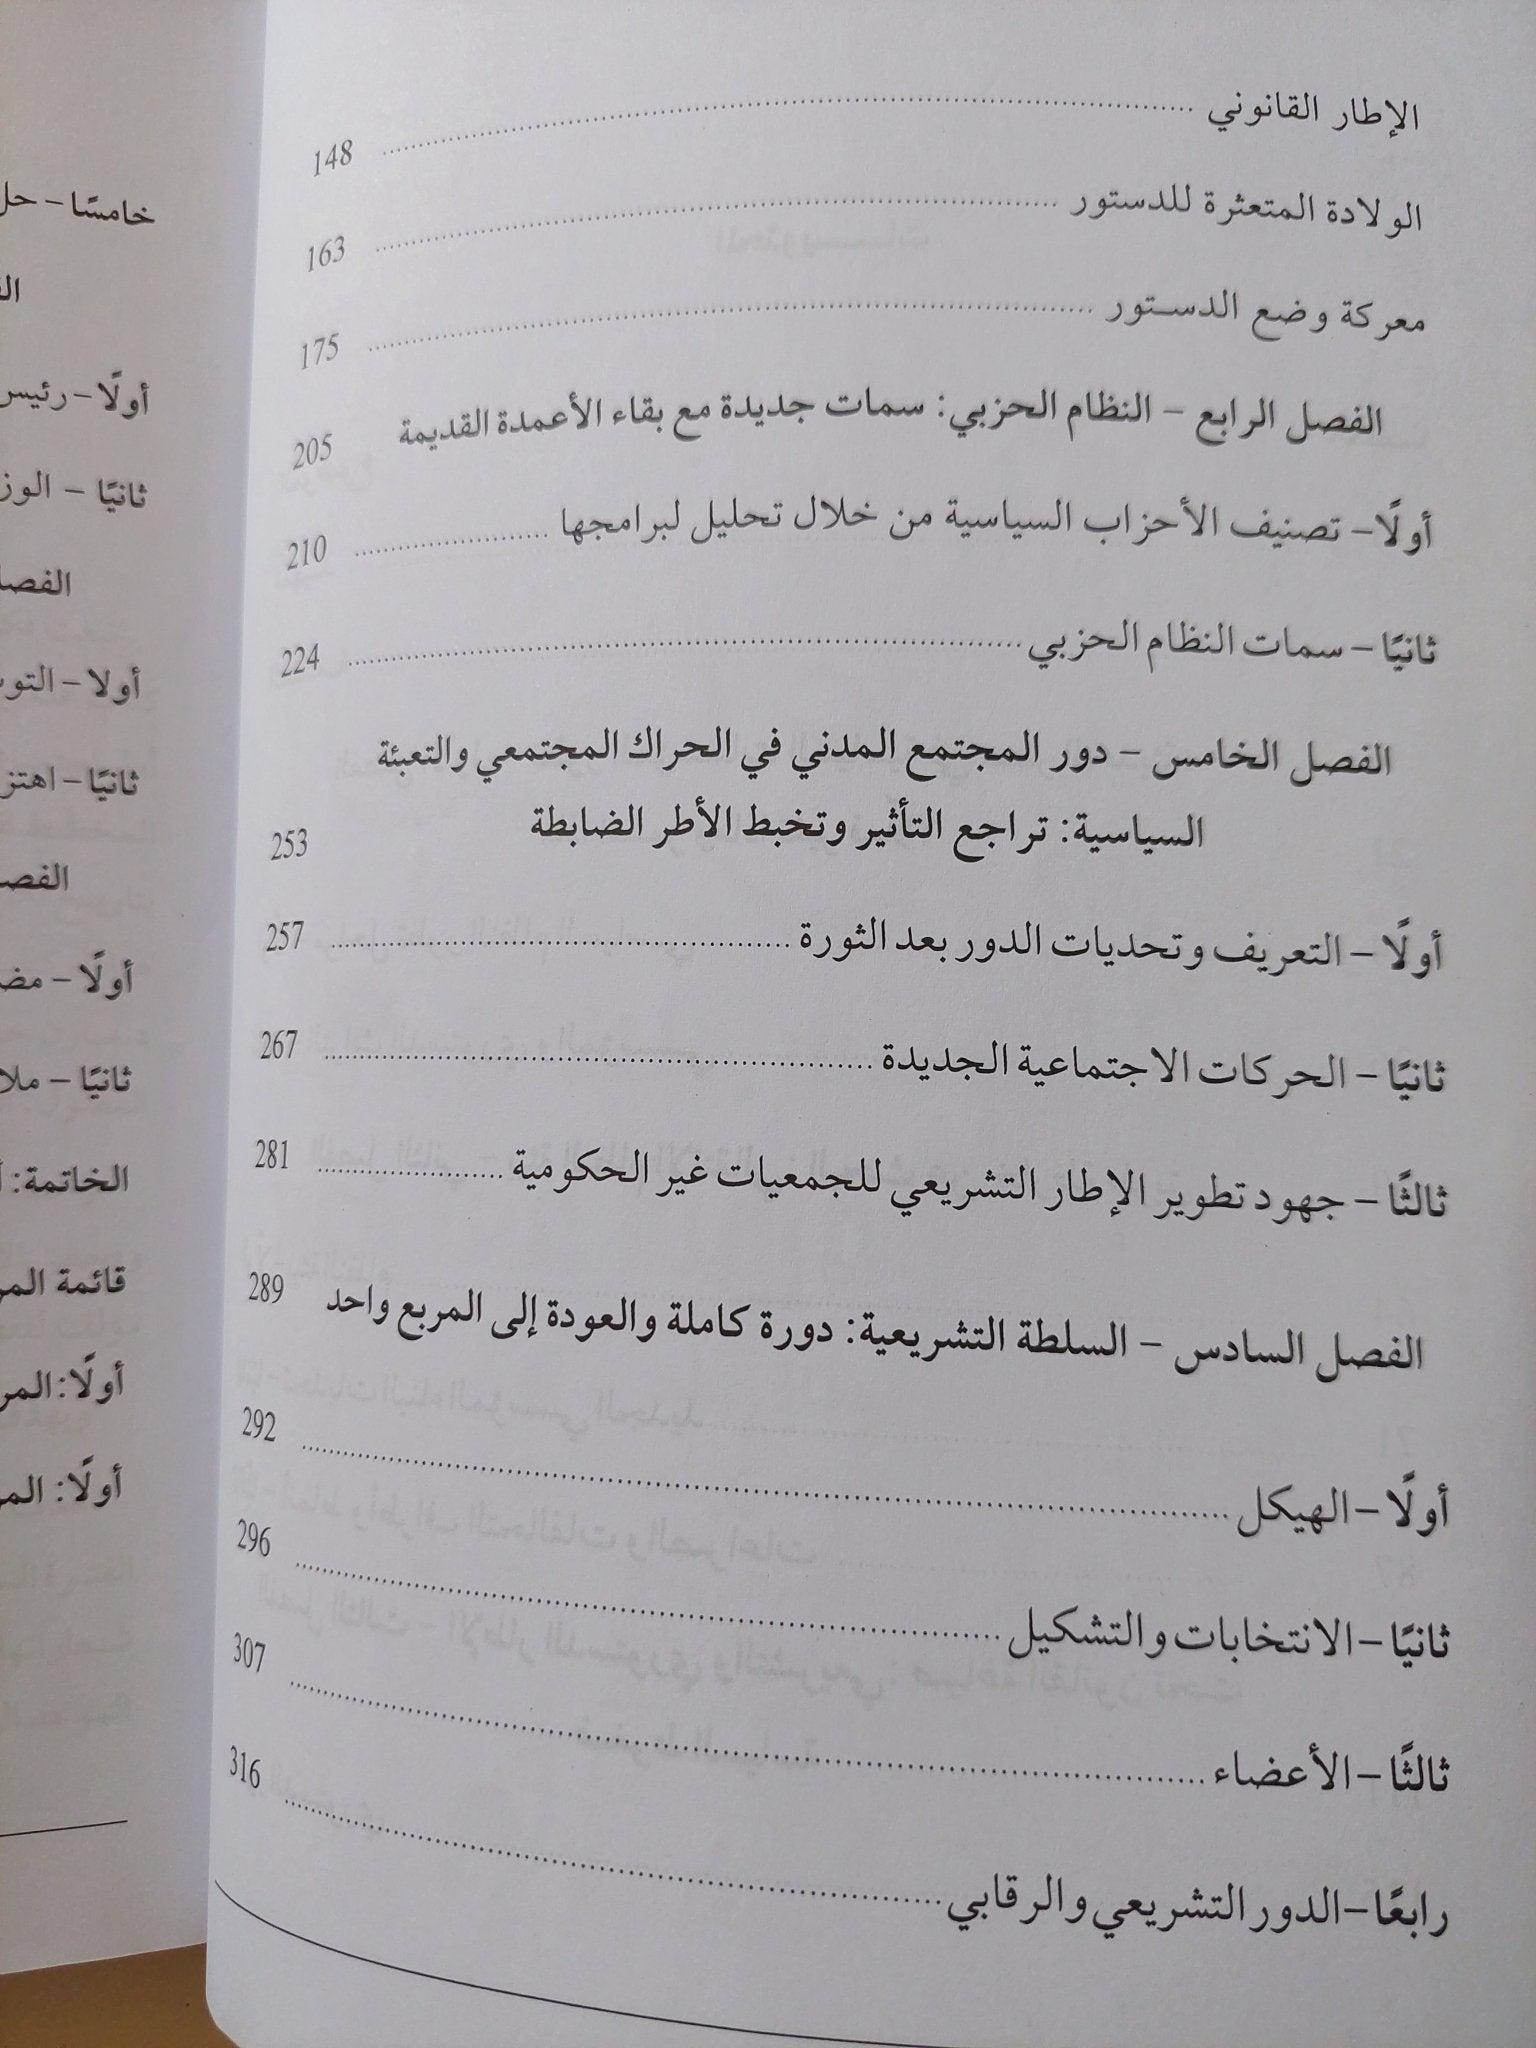 الإطار القانوني 148
الولادة المتعثرة للدستور 163
معركة وضع الدستور 175
الفصل الرابع – النظام الحزبي: سمات جديدة مع بقاء الأعمدة القديمة 205
أولًا – تصنيف الأحزاب السياسية من خلال تحليل لبرامجها 210
ثانيًا – سمات النظام الحزبي 224
الفصل الخامس – دور المجتمع المدني في الحراك المجتمعي والتعبئة
السياسية: تراجع التأثير وتخبط الأطر الضابطة 253
أولًا – التعريف وتحديات الدور بعد الثورة 257
ثانيًا – الحركات الاجتماعية الجديدة 267
ثالثًا – جهود تطوير الإطار التشريعي للجمعيات غير الحكومية 281
الفصل السادس – السلطة التشريعية: دورة كاملة والعودة إلى المربع واحد 289
أولًا – الهيكل 292
ثانيًا – الانتخابات والتشكيل 296
ثالثًا – الأعضاء 307
رابعًا – الدور التشريعي والرقابي 316
خامسًا – حل
أولًا – رئيس
ثانيًا –
أولا –
ثانيًا –
أولًا –
ثانيًا –
الخاتمة:
قائمة
أولًا:
أولًا: